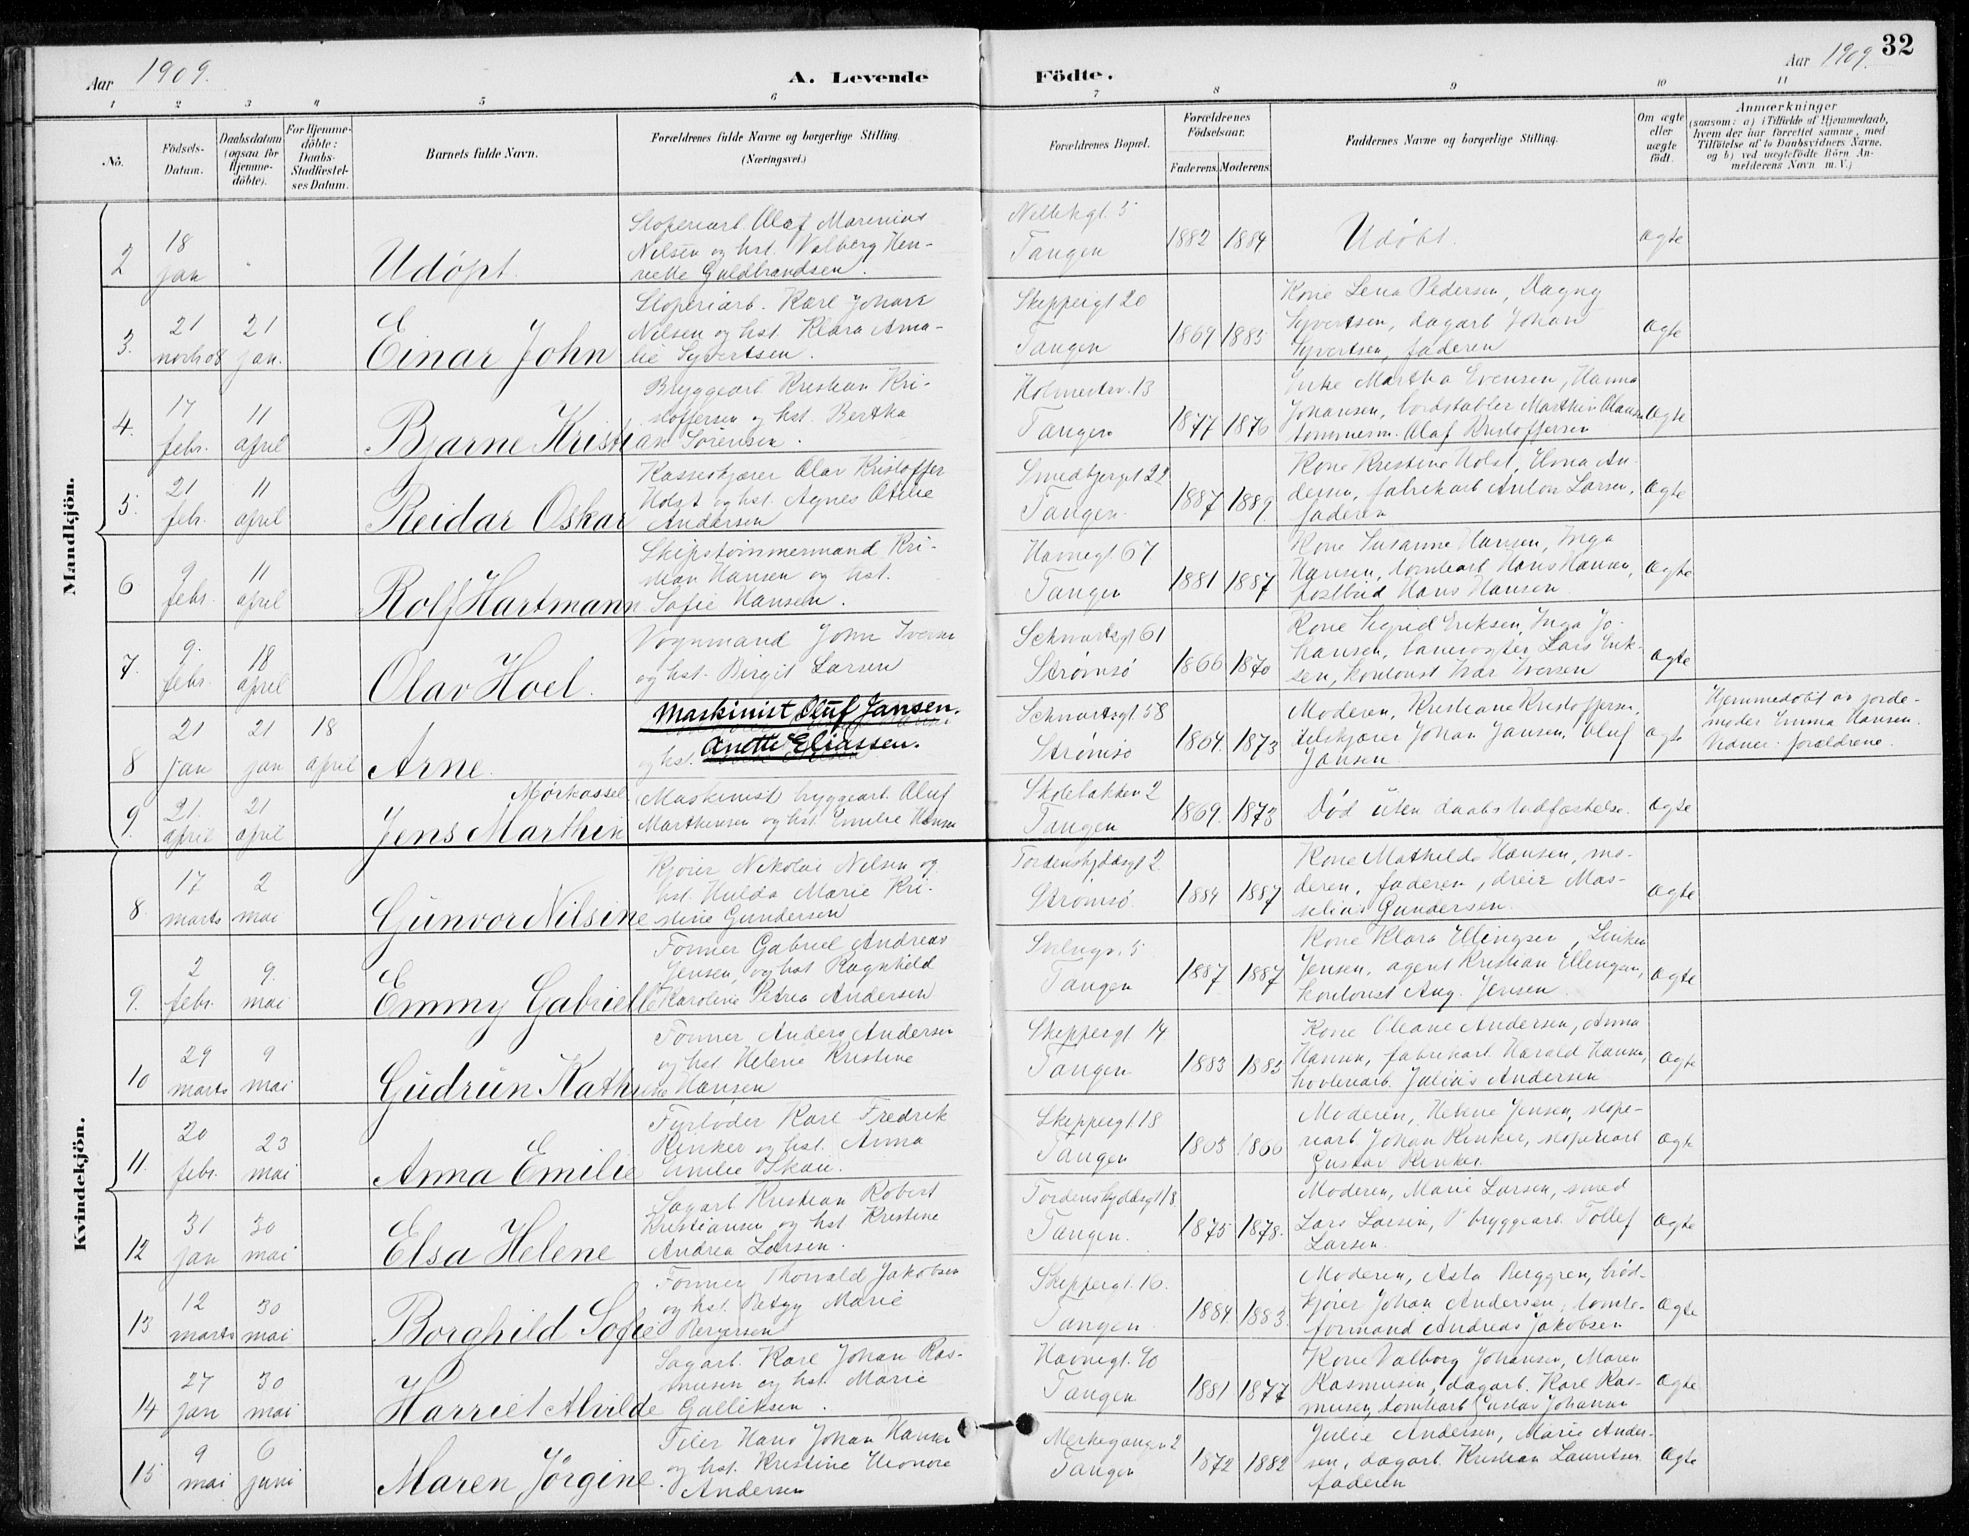 Aar 1909.
A. Levende
Födte.
Aar 1909.
32
1 2 3 4 5 6 7 8 9 10 11
No.
Födsels-
Datum.
Daabsdatum
(ogsaa for
Hjemme-
döbte).
For Hjemme-
döbte:
Daabs-
Stadfæstel-
ses Datum.
Barnets fulde Navn.
Forældrenes fulde Navne og borgerlige Stilling.
(Næringsvei.)
Forældrenes Bopæl.
Forældrenes
Födselsaar.
Faderens. Moderens.
Faddernes Navne og borgerlige Stilling.
Om ægte
eller
uægte
födt.
Anmærkninger
(saasom: a) i Tilfælde af Hjemmedaab,
hvem der har forrettet samme, med
Tilföielse af to Daabsvidners Navne,
og b) ved uægtefödte Börn An-
melderens Navn m. V.)
Mandkjön.
2
18
jan
Udøpt.
Sloperiarb. Olaf Marenius
Nilsen og hst. Valborg Hen-
riette Guldbrandsen.
5
Tangen
1882 1884
Udøbt.
Ægte
3.
21
novbr 08
21
jan.
Einar John
Sloperiarb. Karl Johan
Nilsen og hst. Klara Ama-
lie Syvertsen.
Skippergt 20
Tangen
1869 1885
Kone Lena Pedersen, Dagny
Syvertsen, dagarb Johan
Syvertsen, faderen
Ægte
4.
17
febr.
11
april
Bjarne Kristian
Bryggearb Kristian Kri-
stoffersen og hst. Bertha
Sørensen.
13
Tangen
1877 1876
Enke Martha Evensen, Hanna
Johansen, bordstabler Marthin Olausen
tømmerm. Olaf Kristoffersen
Ægte
5.
21
febr.
11
april
Reidar Oskar
Kasseskjærer Olav Kristoffer
Holst og hst. Agnes Otilie
Andersen
Smedbjergt 22
Tangen.
1887 1889.
Kone Kristine Holst, An-
dersen, fabrikarb Anton Larsen,
faderen
Ægte
6
9
febr.
11
april
Rolf Hartmann
Skipstømmermand Kri-
stian Hansen og hst.
Sofie Hansen.
Havnegt 67
Tangen
1881 1887
Kone Susanne Hansen, Inga
Hansen, tomtearb Hans Hansen,
postbud Hans Hansen
Ægte
7.
9.
febr.
18
april
Olav Hoel.
Vognmand John Iversen
og hst. Birgit Larsen
Schwartzgt 61
Strømsø
1866 1870
Kone Sigrid Eriksen, Inga Jo-
hansen, banevogter Lars Erik-
sen, kontorist Ivar Iversen
Ægte
8
21
jan
21
jan
18
april
Arne.
Maskinist Oluf Jansen.
og hst. Anette Eliassen.
Schwartzgt 58
Strømsø
1864. 1873
Moderen, Kristiane Kristoffersen,
Johan Jansen, Oluf
Jansen
Ægte
Hjemmedøbt av jorde-
moder Emma Hansen.
Vidner: forældrene.
9.
21.
april
21
april
Mørkassel
Jens Marthin
Maskinist bryggearb. Oluf
Marthinsen og hst. Emilie Hansen
Skolebakken 2
Tangen
1869. 1873
Død uten daabs stadfæstelse.
Ægte
Kvindekjön.
8.
17
marts
2
mai
Gunvor Nilsine
Kjører Nikolai Nilsen og
hst. Hulda Marie Kri-
stine Gundersen
Tordenskjoldsgt 2
Strømsø.
1884 1887
Kone Mathilde Hansen, mo-
deren, faderen, dreier Mas-
selius Gundersen.
Ægte
9.
2
febr.
9.
mai
Emmy Gabrielle
Former Gabriel Andreas
Jensen, og hst Ragnhild
Karoline Petrea Andersen
5
Tangen
1887 1887
Kone Klara Ellingsen,
Jensen, agent Kristian Ellingsen,
kontorist Aug. Jensen.
Ægte
10
29
marts
9
mai
Gudrun Kathrine
Former Anders Andersen
og hst Helene Kristine
Hansen
Skippergt. 14
Tangen.
1883 1885
Kone Oleane Andersen, Anna
Hansen, fabrikarb. Harald Hansen,
høvleriarb. Julius Andersen
Ægte
11.
20
febr.
23
mai
Anna Emilie
Fyrbøder Karl Fredrik
Rinker og hst. Anna
Emilie Skau.
Skippergt. 18
Tangen
1865 1866
Moderen, Helene Jensen, slope-
riarb Johan Rinker, sloperiarb
Gustav Rinker.
Ægte
12
31
jan
30
mai
Elsa Helene
Sagarb Kristian Robert
Kristiansen og hst Kristine
Andrea Larsen.
Tordenskjoldsgt 18
Tangen.
1875 1878.
Moderen, Marie Larsen, smed
Lars Larsen, bryggearb. Tollef
Larsen.
Ægte
13
12
marts
30
mai
Borghild Sofie
Former Thorvald Jakobsen
og hst. Betzy Marie
Bergersen
Skippergt. 16.
Tangen
1884. 1883.
Moderen, Asta Berggren, brød-
kjører Johan Andersen, tomte-
formand Andreas Jakobsen
Ægte
14
27
jan
30
mai
Harriet Alvilde
Sagarb. Karl Johan Ras-
mussen og hst. Marie
Gulliksen.
Havnegt. 40
Tangen
1881 1877
Kone Valborg Johansen, Maren
Rasmusen, dagarb. Karl Ras-
musen, tomtearb Gustav Johansen
Ægte
15
9
mai
6
juni
Maren Jørgine.
Filer Hans Johan Hansen
og hst. Kristine Eleonore
Andersen
2
Tangen
1872 1882
Julie Andersen, Marie Ander-
sen, dagarb. Kristian Lauritsen
faderen
Ægte